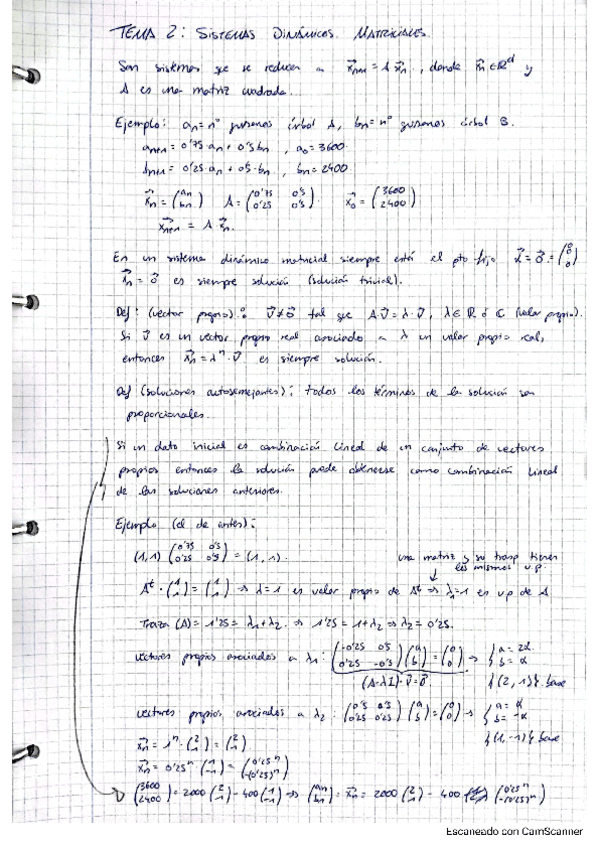 TEMA 2: SISTEMAS DINÁMICOS MATRICIALES.
Son sistemas que se reducen a: x⃗n+1 = A x⃗n, donde x⃗n ∈ ℝᵈ y
A es una matriz cuadrada.
Ejemplo: an = nº gusanos árbol A, bn = nº gusanos árbol B.
an+1 = 0'75·an + 0'5bn, a0 = 3600
bn+1 = 0'25·an + 0'5·bn, bn = 2400
x⃗n = (an bn) A = (0'75 0'5 0'25 0'5). x⃗0 = (3600 2400)
x⃗n+1 = A x⃗n.
En un sistema dinámico matricial siempre está el pto fijo α⃗ = 0⃗ = (0 0)
x⃗n = 0⃗ es siempre solución (solución trivial).
Def: (vector propio): v⃗ ≠ 0⃗ tal que A·v⃗ = λ·v⃗, λ ∈ ℝ ó ℂ (valor propio).
Si v⃗ es un vector propio real asociado a λ un valor propio real,
entonces x⃗n = λⁿ·v⃗ es siempre solución.
Def (soluciones autosemejantes): todos los términos de la solución son
proporcionales.
Si un dato inicial es combinación lineal de un conjunto de vectores
propios entonces la solución puede obtenerse como combinación lineal
de las soluciones anteriores.
Ejemplo (el de antes):
(1,1) (0'75 0'5 0'25 0'5) = (1,1).
una matriz y su trasp tienen
los mismos v.p.
Aᵗ·(1 1) = (1 1) → λ=1 es valor propio de Aᵗ ⇒ λ1=1 es v.p de A
Traza (A) = 1'25 = λ1+λ2 ⇒ 1'25 = 1+λ2 ⇒ λ2 = 0'25.
vectores propios asociados a λ1: (-0'25 0'5 0'25 -0'5)(a b) = (0 0) → { a = 2α b = α
(A-λI)·v⃗ = 0⃗
{(2,1)} base
vectores propios asociados a λ2: (0'5 0'5 0'25 0'25)(a b) = (0 0) → { a = α b = -α
{(1,-1)} base
x⃗n = 1ⁿ·(2 1) = (2 1)
x⃗n = 0'25ⁿ·(1 -1) = (0'25ⁿ -(0'25)ⁿ)
(3600 2400) = 2000(2 1) - 400(1 -1) → (an bn) = x⃗n = 2000(2 1) - 400 (0'25ⁿ -(0'25)ⁿ)
Escaneado con CamScanner